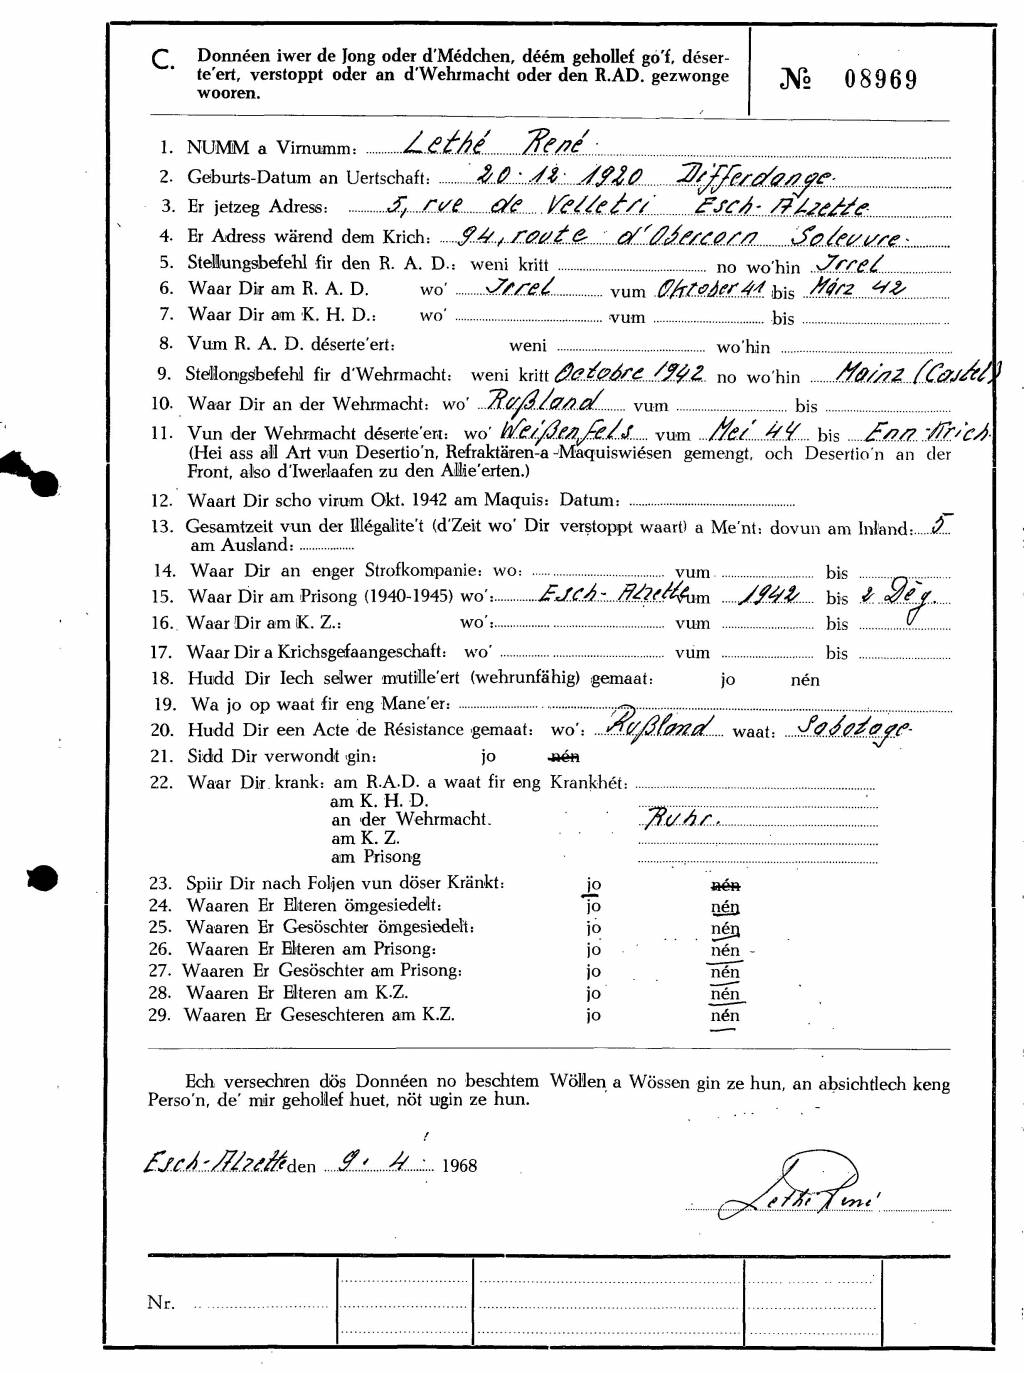 C. Donnéen iwer de Jong oder d'Médchen, déém gehollef go'f, déser-
te'ert, verstoppt oder an d'Wehrmacht oder den R.AD. gezwonge
wooren.
№ 08969
1. NUMM a Virnumm: Lethé René
2. Geburts-Datum an Uertschaft: 20.12.1920 Differdange.
3. Er jetzeg Adress: 5, rue de Velletri Esch-Alzette
4. Er Adress wärend dem Krich: 94, route d'Obercorn Soleuvre.
5. Stellungsbefehl fir den R. A. D.: weni kritt no wo'hin Irrel
6. Waar Dir am R. A. D. wo' Irrel vum Oktober 41 bis März 42
7. Waar Dir am K. H. D.: wo' vum bis
8. Vum R. A. D. déserte'ert: weni wo'hin
9. Stellongsbefehl fir d'Wehrmacht: weni kritt Octobre 1942 no wo'hin Mainz (Castel)
10. Waar Dir an der Wehrmacht: wo' Rußland vum bis
11. Vun der Wehrmacht déserte'ert: wo' Weißenfels vum Mei 44 bis Enn-Krich.
(Hei ass all Art vun Desertio'n, Refraktären-a-Maquiswiésen gemengt, och Desertio'n an der
Front, also d'Iwerlaafen zu den Allie'erten.)
12. Waart Dir scho virum Okt. 1942 am Maquis: Datum:
13. Gesamtzeit vun der Illégalite't (d'Zeit wo' Dir verstoppt waart) a Me'nt: dovun am Inland: 5
am Ausland:
14. Waar Dir an enger Strofkompanie: wo: vum bis
15. Waar Dir am Prisong (1940-1945) wo': Esch-Alzette vum 1942 bis 2 Dég.
16. Waar Dir am K. Z.: wo': vum bis
17. Waar Dir a Krichsgefaangeschaft: wo' vum bis
18. Hudd Dir Iech selwer mutille'ert (wehrunfähig) gemaat: jo nén
19. Wa jo op waat fir eng Mane'er:
20. Hudd Dir een Acte de Résistance gemaat: wo': Rußland waat: Sabotage.
21. Sidd Dir verwondt gin: jo nén
22. Waar Dir krank: am R.A.D. a waat fir eng Krankhét:
am K. H. D.
an der Wehrmacht. Ruhr.
am K. Z.
am Prisong
23. Spiir Dir nach Foljen vun döser Kränkt: jo nén
24. Waaren Er Elteren ömgesiedelt: jo nén
25. Waaren Er Gesöschter ömgesiedelt: jo nén
26. Waaren Er Elteren am Prisong: jo nén
27. Waaren Er Gesöschter am Prisong: jo nén
28. Waaren Er Elteren am K.Z. jo nén
29. Waaren Er Geseschteren am K.Z. jo nén
Ech versechren dös Donnéen no beschtem Wöllen a Wössen gin ze hun, an absichtlech keng
Perso'n, de' mir gehollef huet, nöt ugin ze hun.
Esch-Alzette den 9. 4. 1968
Lethé René
Nr.